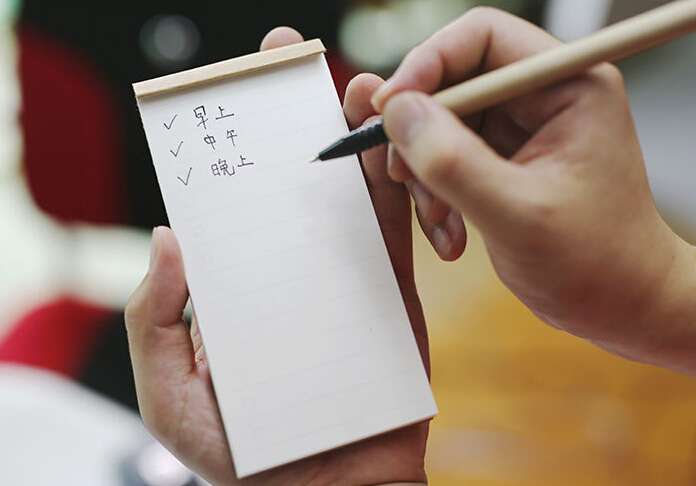 ✓ 早上
✓ 中午
✓ 晚上